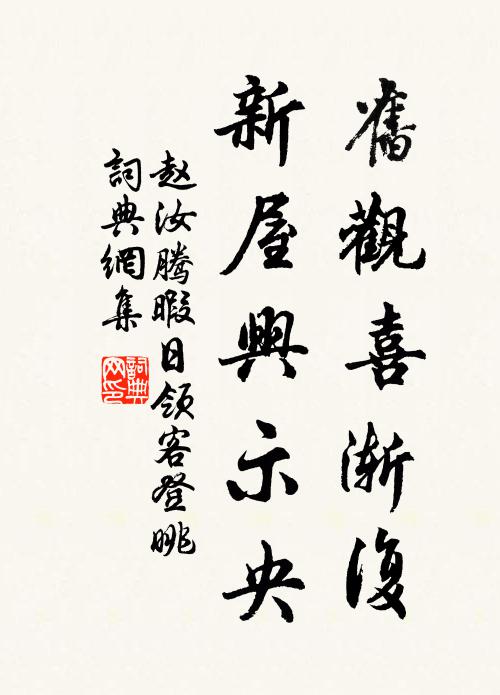 舊觀喜漸復
新屋興示央
赵汝腾暇日领客登眺
詞典網集
詞典網印